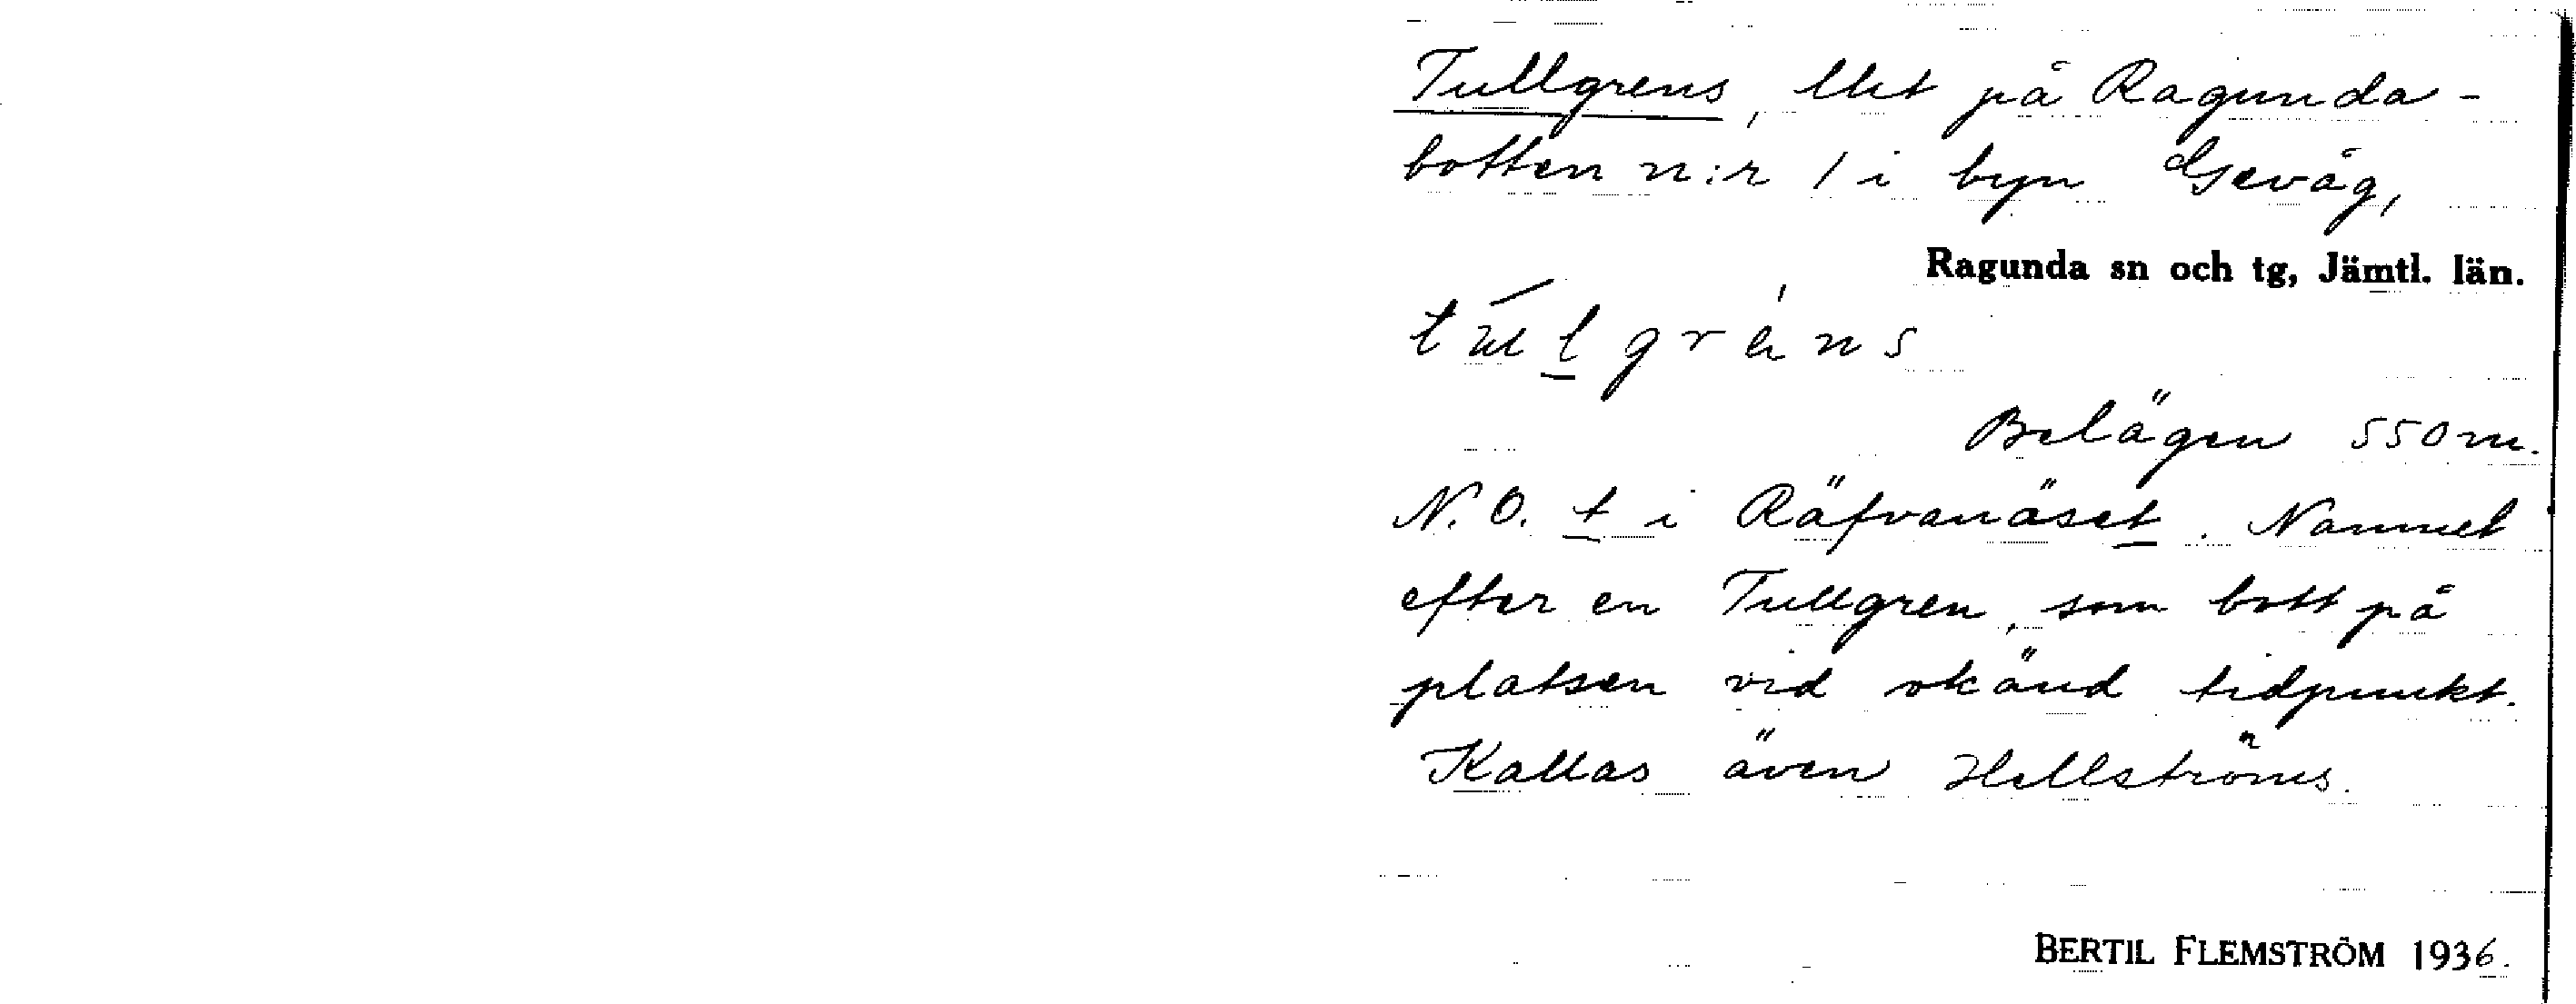 Tullgrens, llht på Ragunda-
botten n:r 1 i byn Gevåg,
Ragunda sn och tg, Jämtl. län.
Belägen 550 m.
N.O. t i Räfvanäset. Namnet
efter en Tullgren, som bott på
platsen vid okänd tidpunkt.
Kallas även Hellströms.
BERTIL FLEMSTRÖM 1936.